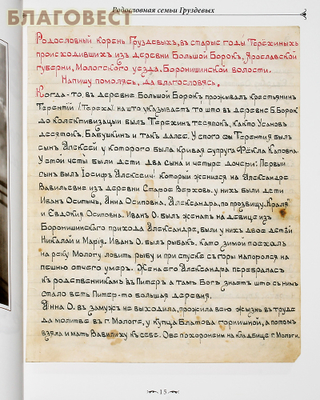 БЛАГОВЕСТ
Родословная семьи Груздевых
Родословный корень Груздевых, в старые годы Терехиных
происходивших из деревни Большой Борок, Ярославской
губернии, Мологского уезда, Боронишинской волости.
Напишу помолясь, да благословясь,
Когда-то, в деревне Большой Борок проживалъ крестьянин
Терентий (Тереха) на што указываетъ то што в деревне Б. Борок
до колективизацыи былъ Терехин десяток, какъ Усанов
десяток, Бабушкин и такъ далее. У этого сын Терентия былъ
сын Алексей у которого была кривая супруга Фёкла Каповна.
У этой четы были дети два сына и четыре дочери: Первый
сын былъ Iосифъ Алексеич который жэнился на Александре
Вавильевне из деревни Старое Верхово. у них были дети
Иван Осипыч, Анна Осиповна, Александра, по прозвищу „Краля"
и Евдокия Осиповна. Иван О. былъ жэнатъ на девице из
Боронишинского прихода Александре, были у них двое детей
Николай и Марiя. Иван О. был рыбак, както зимой поехалъ
на реку Мологу ловить рыбу и при спуске с горы напоролся на
пешню отчего умер. Жена его Александра перебралась
к родственникам в Питер а там Богъ знаетъ што с ними
стало ведь Питер-то большая деревня.
Анна О. в замуж не выходила, прожила всю жизнь в труде
да молитве в г. Мологе, у купца Блатова горнишной, а потом
взяла и мать Вавилиху к себе. Обе похоронены на кладбище г. Мологи.
15